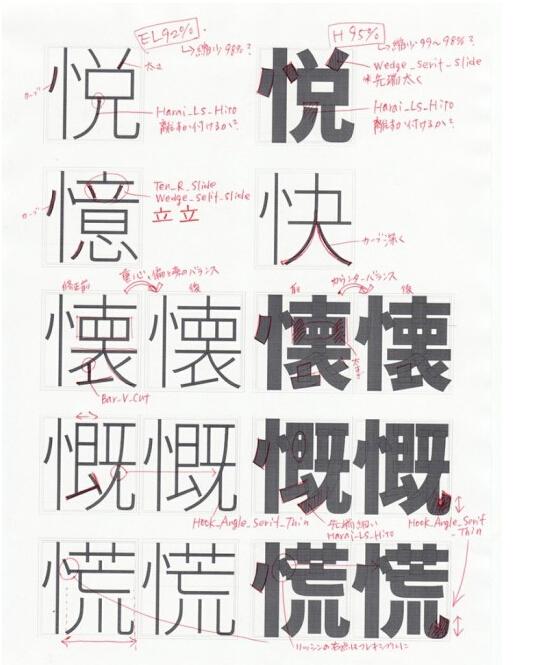 EL92%
H 95%
→縮小 98%?
→縮小 99〜98%?
太さ
カーブ
悦
悦
wedge_serif_slide
先端太く
Harai_Ls_Hito
離れか付けるか?
Harai_Ls_Hito
離れか付けるか?
憶
快
Ten_R_Slide
wedge_serif_slide
立 立
カーブ
カーブ深く
修正前
後
前
カウンターバランス
後
懐
懐
懐
懐
Bar_V_Cut
慨
慨
慨
慨
Hook_Angle_Serif_Thin
先端細い
Harai_Ls_Hito
Hook_Angle_Serif
_Thin
慌
慌
慌
慌